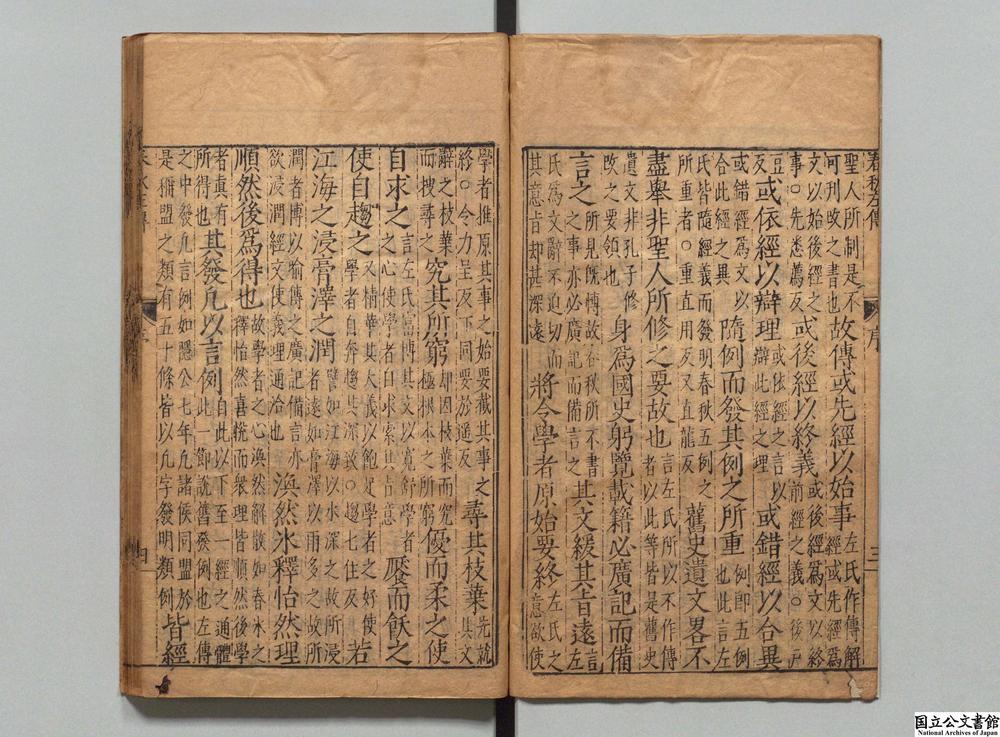 春秋左傳 序 三
聖人所制是不何刊改之書也故傳或先經以始事左氏作傳解經或先經爲
文以始後經之事○先悉薦反或後經以終義或後經爲文以終前經之義○後戶
豆反或依經以辯理或依經之言以辯此經之理或錯經以合異
或錯經爲文以合此經之異隨例而發其例之所重例即五例也此言左
氏皆隨經義而發明春秋五例之所重者○重直用反又直龍反舊史遺文畧不
盡舉非聖人所修之要故也言左氏所以不作傳者以此等皆是舊史
遺文非孔子修改之要領也身爲國史躬覽載籍必廣記而備
言之所見既博故春秋所不書之事亦必廣記而備言之其文緩其旨遠言左
氏爲文辭不迫切而其意旨却甚深遠將令學者原始要終左氏之意欲使
學者推原其事之始要截其事之終○令力呈反下同要於遥反尋其枝葉先就其文
辭之枝葉而搜尋之究其所窮却因枝葉而究極根本之所窮優而柔之使
自求之言左氏富博其文以寬舒學者之心使學者自求索其旨意饜而飫之
使自趨之又精華其大義以飽足學者之好使學者自奔趨其深致○趨七住反若
江海之浸膏澤之潤譬如江海以水深之故所浸者遠如膏澤以雨多之故所
潤者博以喻傳之廣記備言亦欲浸潤經文使義理通洽也渙然冰釋怡然理
順然後爲得也故學者之心渙然解散如春冰之釋怡然喜悅而衆理皆順然後學
者眞有所得也其發凡以言例自此以下至一經之通體此一節說舊發例也左傳
之中發凡言例如隱公七年凡諸侯同盟於是稱盟之類有五十條皆以凡字發明類例皆經
四
国立公文書館
National Archives of Japan